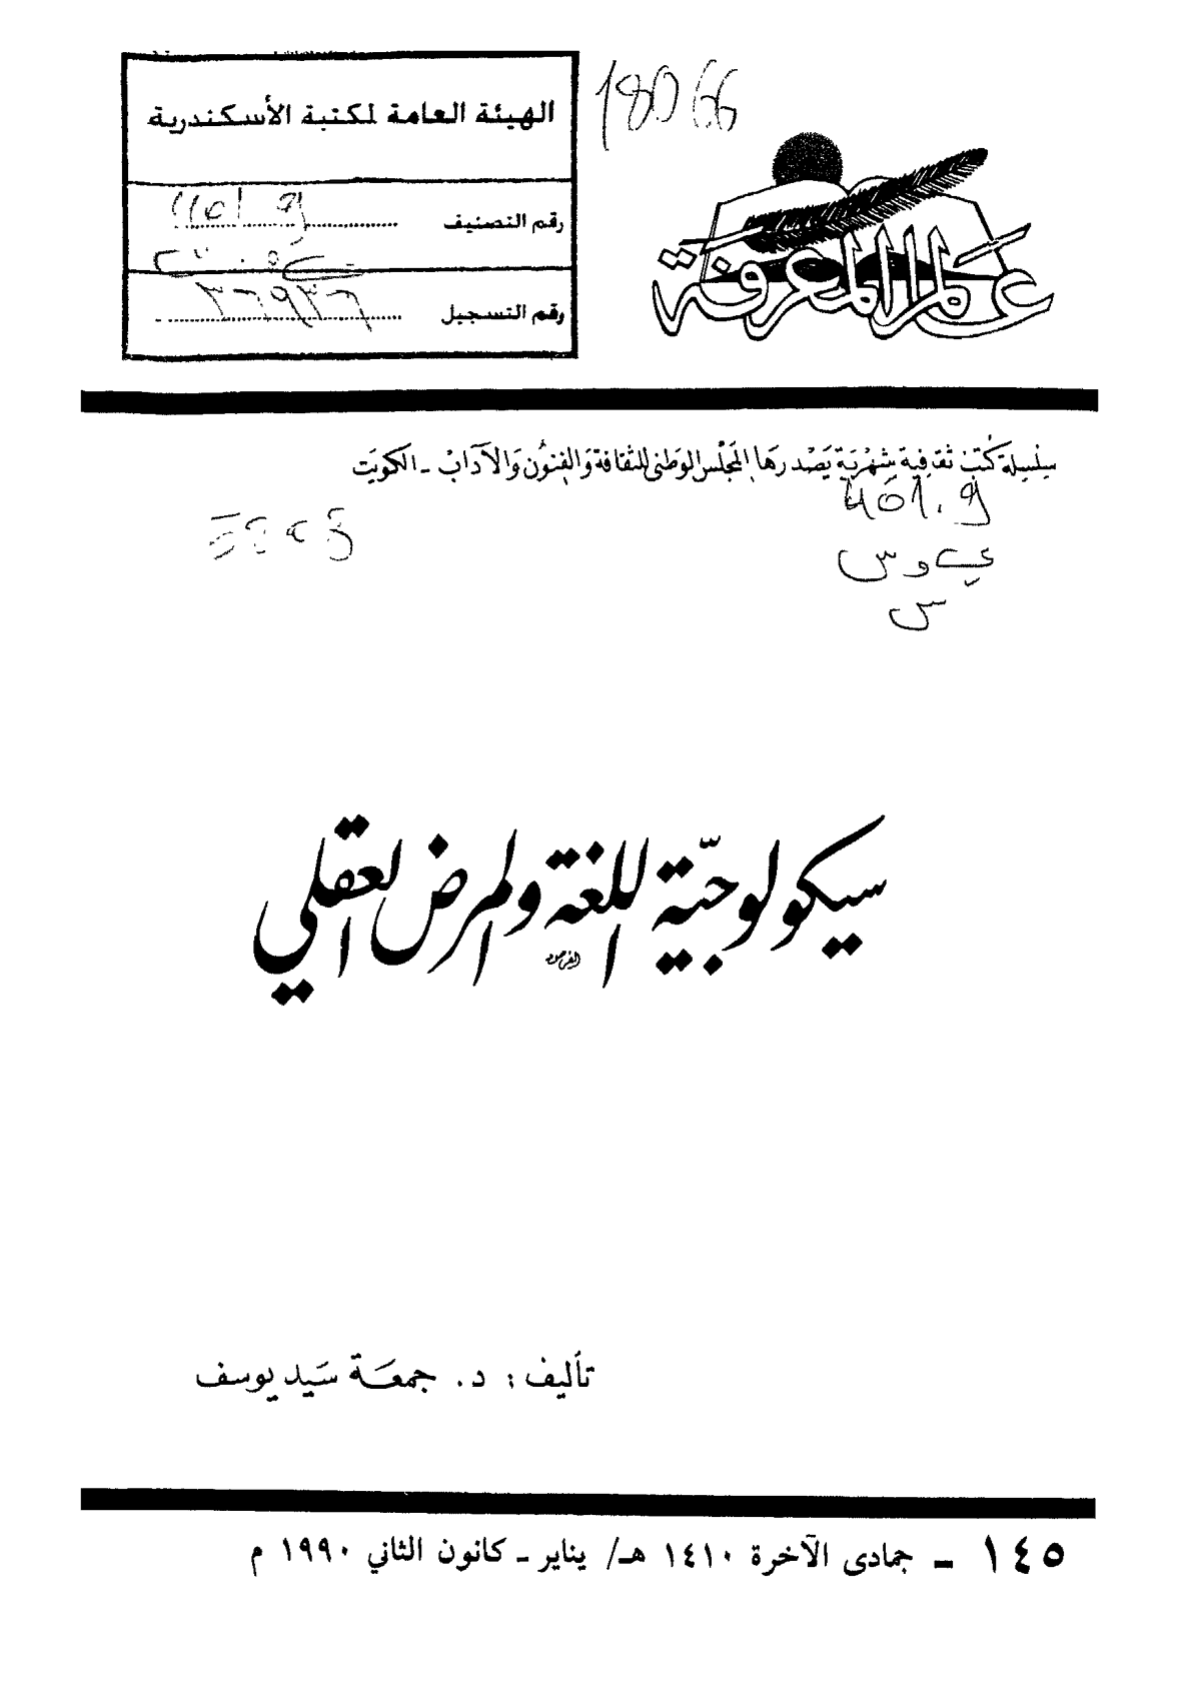 الهيئة العامة لمكتبة الأسكندرية
رقم التصنيف
رقم التسجيل ٣٦٩٣٦
18066
عالم المعرفة
سلسلة كتب ثقافية شهرية يصدرها المجلس الوطني للثقافة والفنون والآداب - الكويت
401.9
ي و س
س
سيكولوجيّة اللغة والمرض العقلي
تأليف : د . جمعَة سَيد يوسف
١٤٥ - جمادى الآخرة ١٤١٠ هـ/ يناير - كانون الثاني ١٩٩٠ م